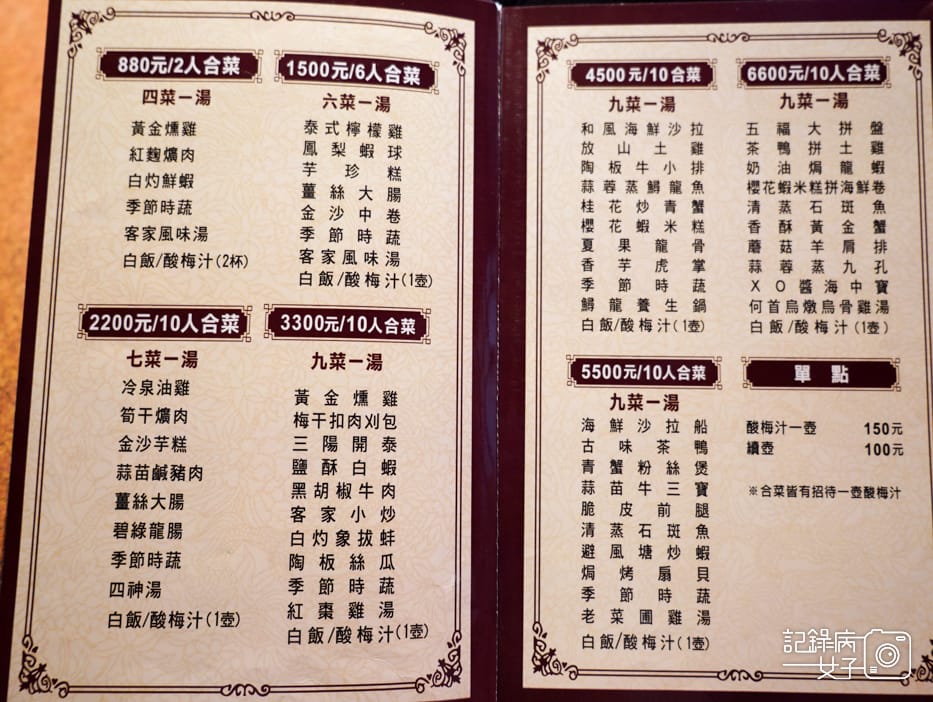 880元/2人合菜
四菜一湯
黃金燻雞
紅麴爌肉
白灼鮮蝦
季節時蔬
客家風味湯
白飯/酸梅汁(2杯)
1500元/6人合菜
六菜一湯
泰式檸檬雞
鳳梨蝦球
芋珍糕
薑絲大腸
金沙中卷
季節時蔬
客家風味湯
白飯/酸梅汁(1壺)
2200元/10人合菜
七菜一湯
冷泉油雞
筍干爌肉
金沙芋糕
蒜苗鹹豬肉
薑絲大腸
碧綠龍腸
季節時蔬
四神湯
白飯/酸梅汁(1壺)
3300元/10人合菜
九菜一湯
黃金燻雞
梅干扣肉刈包
三陽開泰
鹽酥白蝦
黑胡椒牛肉
客家小炒
白灼象拔蚌
陶板絲瓜
季節時蔬
紅棗雞湯
白飯/酸梅汁(1壺)
4500元/10合菜
九菜一湯
和風海鮮沙拉
放山土雞
陶板牛小排
蒜蓉蒸鱘龍魚
桂花炒青蟹
櫻花蝦米糕
夏果龍骨
香芋虎掌
季節時蔬
鱘龍養生鍋
白飯/酸梅汁(1壺)
6600元/10人合菜
九菜一湯
五福大拼盤
茶鴨拼土雞
奶油焗龍蝦
櫻花蝦米糕拼海鮮卷
清蒸石斑魚
香酥黃金蟹
蘑菇羊肩排
蒜蓉蒸九孔
XO醬海中寶
何首烏燉烏骨雞湯
白飯/酸梅汁(1壺)
5500元/10人合菜
九菜一湯
海鮮沙拉船
古味茶鴨
青蟹粉絲煲
蒜苗牛三寶
脆皮前腿
清蒸石斑魚
避風塘炒蝦
焗烤扇貝
季節時蔬
老菜圃雞湯
白飯/酸梅汁(1壺)
單點
酸梅汁一壺 150元
續壺 100元
※合菜皆有招待一壺酸梅汁
記錄病
女子